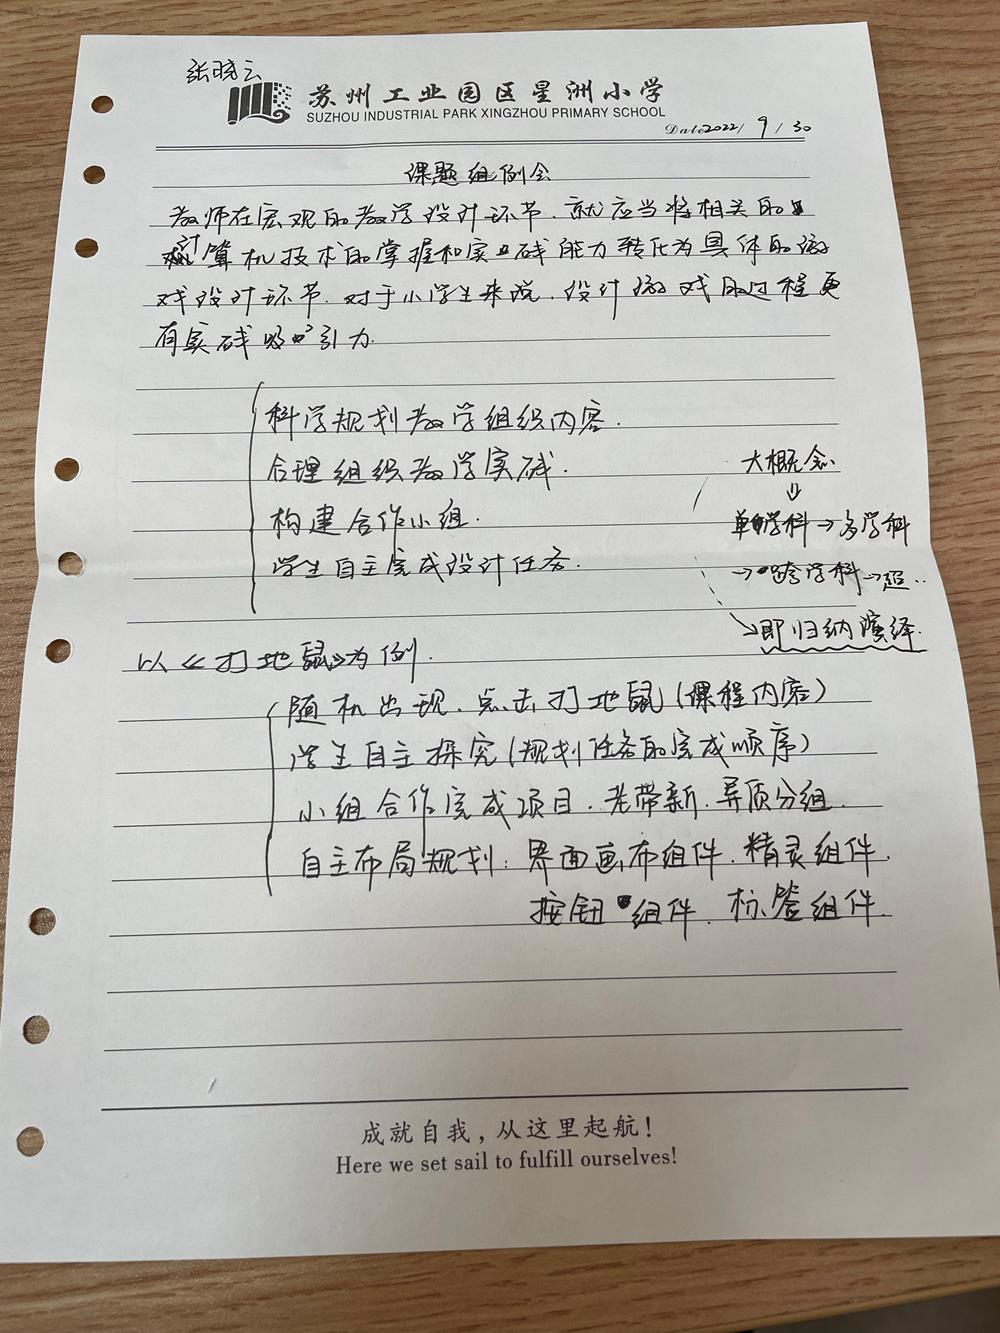 张晓云
苏州工业园区星洲小学
SUZHOU INDUSTRIAL PARK XINGZHOU PRIMARY SCHOOL
Date 2022/9/30
课题组例会
教师在宏观的教学设计环节.就应当将相关的
计算机技术的掌握和实践能力转化为具体的游
戏设计环节.对于小学生来说.设计游戏的过程更
有实践吸引力.
科学规划教学组织内容.
合理组织教学实践.
构建合作小组.
学生自主完成设计任务.
大概念
⇓
单学科→多学科
→跨学科→超..
→即归纳演绎.
以《打地鼠》为例.
随机出现.点击打地鼠(课程内容)
学生自主探究(规划任务的完成顺序)
小组合作完成项目.老带新.异质分组.
自主布局规划:界面画布组件.精灵组件.
按钮组件.标签组件.
成就自我，从这里起航！
Here we set sail to fulfill ourselves!